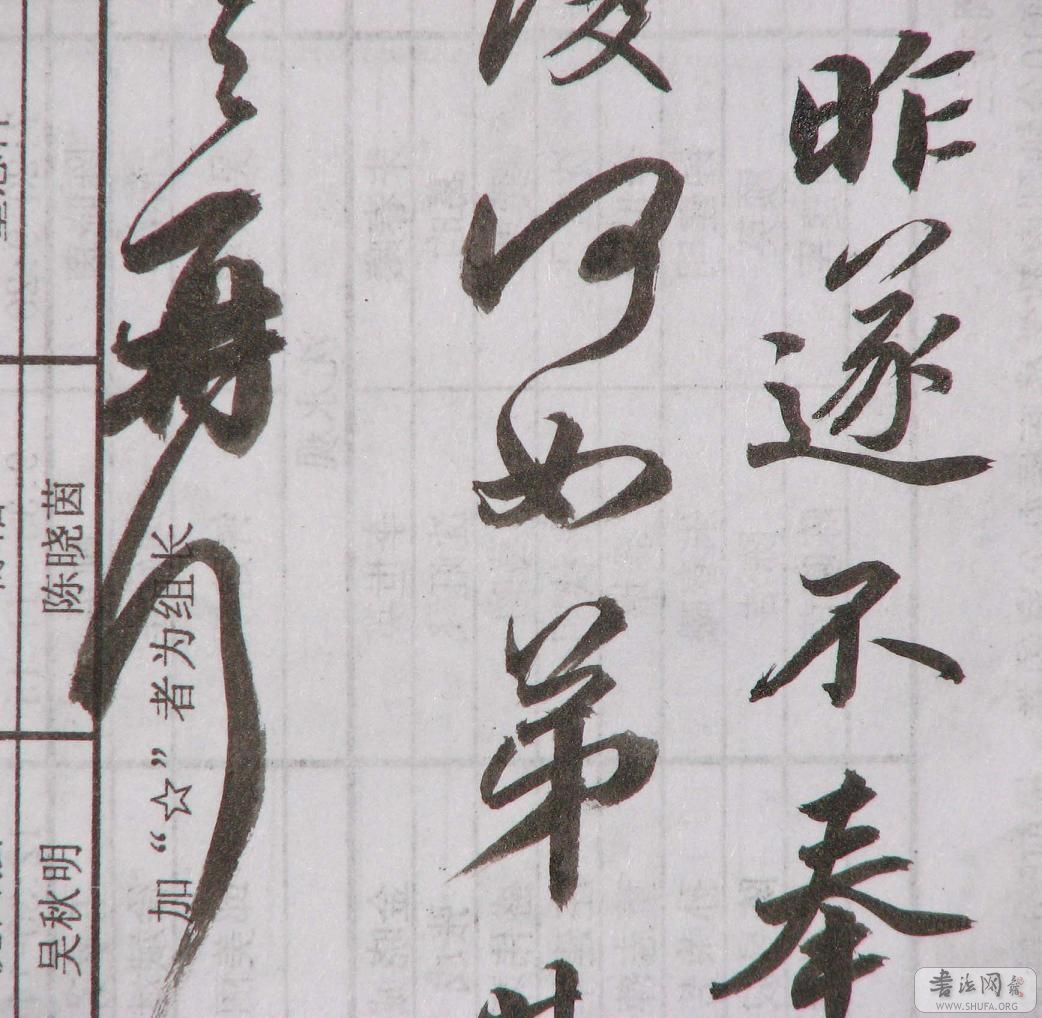 昨遂不奉
何如弟
之再拜
加“☆”者为组长
陈晓茵
吴秋明
書法网
WWW.SHUFA.ORG